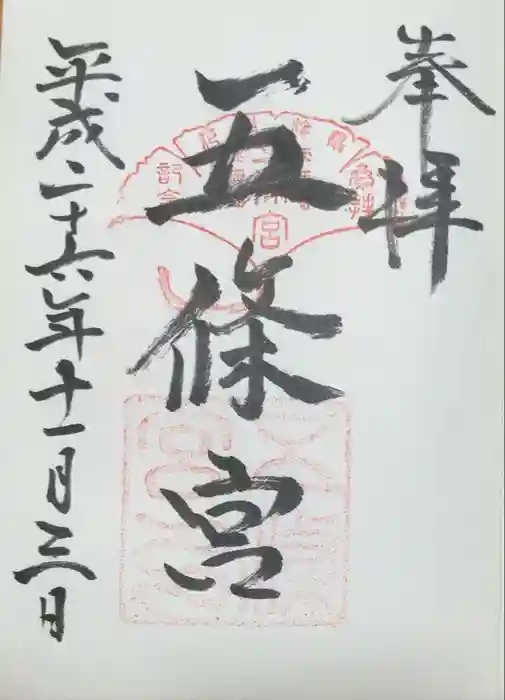 奉拝
五條宮
平成二十六年十一月三日